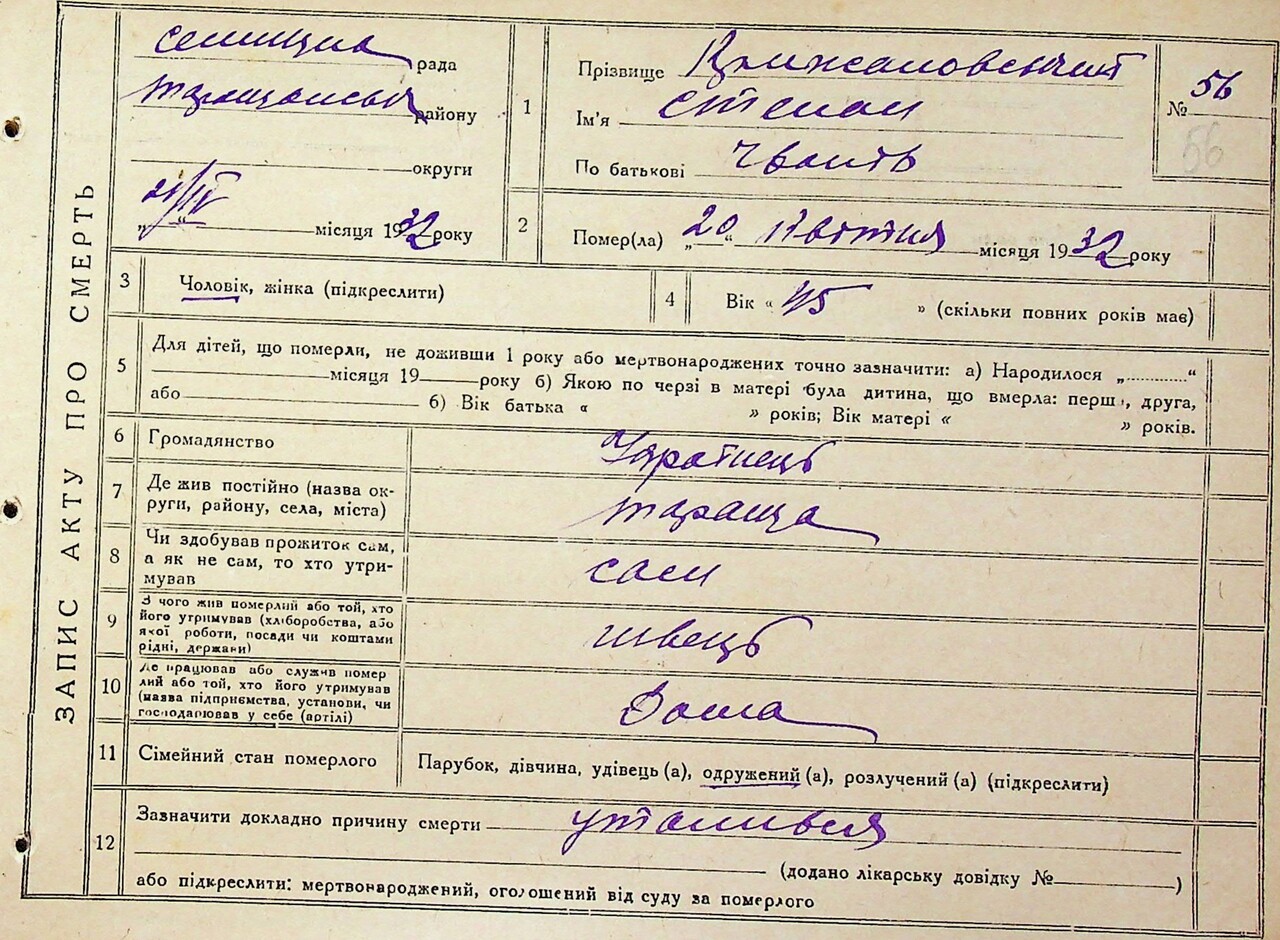 ЗАПИС АКТУ ПРО СМЕРТЬ
селищна рада
Таращанськ району
округи
21/IV місяця 1932 року
1 Прізвище Крижановский
Ім'я Степан
По батькові
№ 56
56
2 Помер(ла) „20“ квітня місяця 1932 року
3 Чоловік, жінка (підкреслити)
4 Вік « 45 » (скільки повних років має)
5 Для дітей, що померли, не доживши 1 року або мертвонароджених точно зазначити: а) Народилося „..........“
місяця 19 року б) Якою по черзі в матері була дитина, що вмерла: перш , друга,
або б) Вік батька « » років; Вік матері « » років.
6 Громадянство Українець
7 Де жив постійно (назва ок-
руги, району, села, міста) Тараща
8 Чи здобував прожиток сам,
а як не сам, то хто утри-
мував сам
9 З чого жив померлий або той, хто
його утримував (хліборобства, або
якої роботи, посади чи коштами
рідні, держави) швець
10 Де працював або служив помер
лий або той, хто його утримував
(назва підприємства, установи, чи
господарював у себе (артілі) Дома
11 Сімейний стан померлого Парубок, дівчина, удівець (а), одружений (а), розлучений (а) (підкреслити)
12 Зазначити докладно причину смерти утопився
(додано лікарську довідку № )
або підкреслити: мертвонароджений, оголошений від суду за померлого